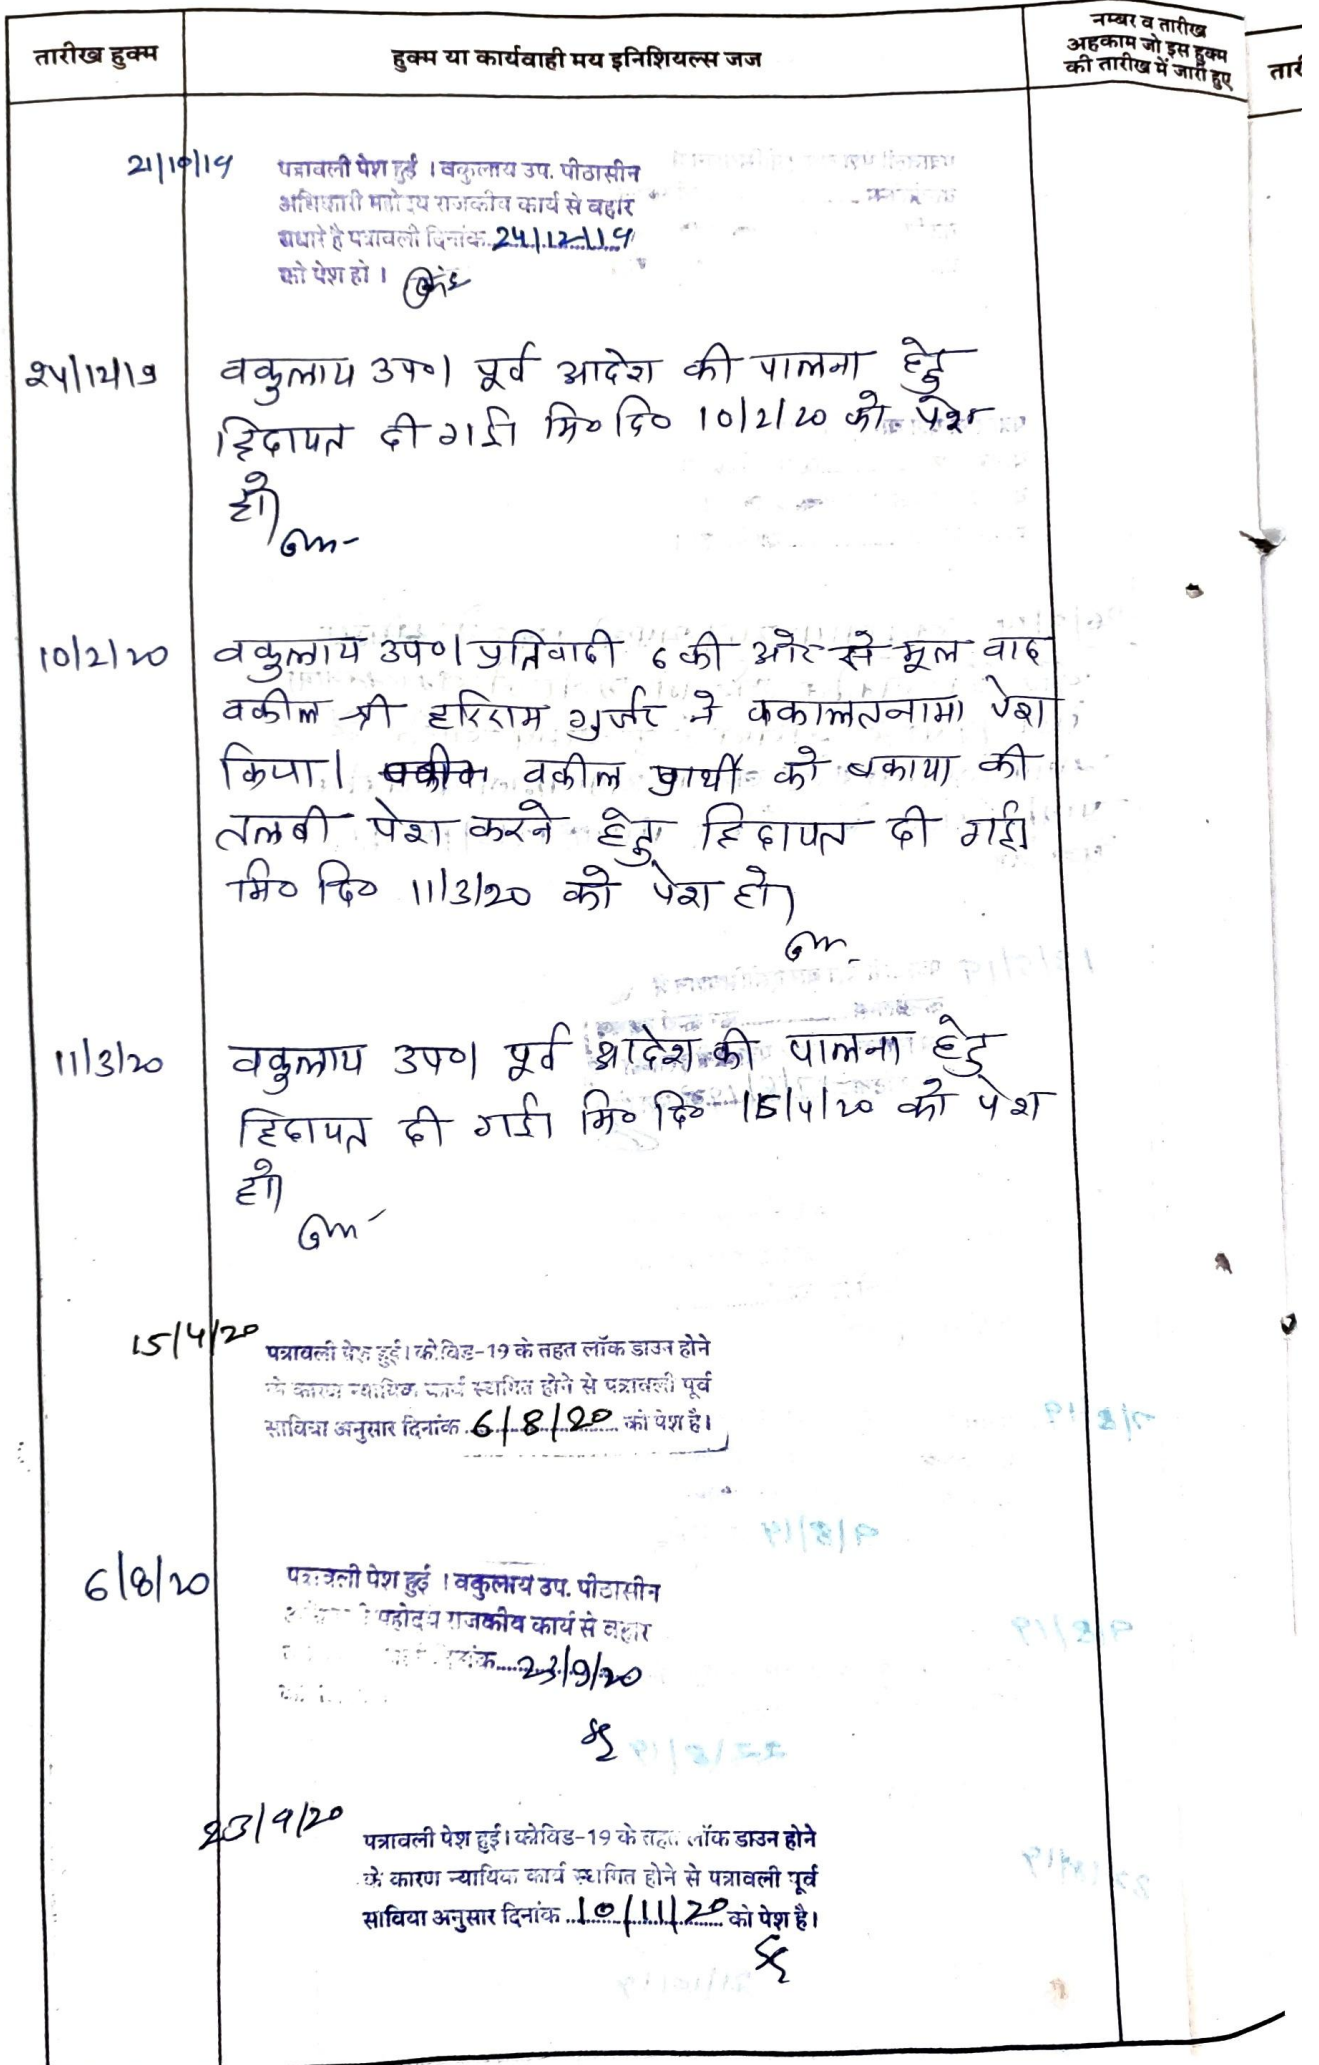 तारीख हुक्म
हुक्म या कार्यवाही मय इनिशियल्स जज
नम्बर व तारीख
अहकाम जो इस हुक्म
की तारीख में जारी हुए
21/10/19
पत्रावली पेश हुई । वकुलाय उप. पीठासीन
अधिकारी महोदय राजकीय कार्य से बहार
पधारे है पत्रावली दिनांक 24/12/19
को पेश हो ।
24/12/19
वकुलाय उप०। पूर्व आदेश की पालना हेतु
हिदायत दी गई। मि० दि० 10/2/20 को पेश
हो।
10/2/20
वकुलाय उप०। प्रतिवादी 6 की ओर से मूल वाद
वकील श्री हरिराम गुर्जर ने वकालतनामा पेश
किया। वकील प्रार्थी को बकाया की
तलबी पेश करने हेतु हिदायत दी गई।
मि० दि० 11/3/20 को पेश हो।
11/3/20
वकुलाय उप०। पूर्व आदेश की पालना हेतु
हिदायत दी गई। मि० दि० 15/4/20 को पेश
हो।
15/4/20
पत्रावली पेश हुई। कोविड-19 के तहत लॉक डाउन होने
के कारण न्यायिक कार्य स्थगित होने से पत्रावली पूर्व
साविया अनुसार दिनांक 6/8/20 को पेश है।
6/8/20
पत्रावली पेश हुई । वकुलाय उप. पीठासीन
महोदय राजकीय कार्य से बहार
23/9/20
23/9/20
पत्रावली पेश हुई। कोविड-19 के तहत लॉक डाउन होने
के कारण न्यायिक कार्य स्थगित होने से पत्रावली पूर्व
साविया अनुसार दिनांक 10/11/20 को पेश है।